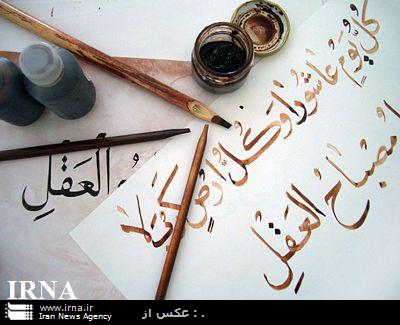 كُلُّ يَوْمٍ عاشُورا وَ كُلُّ أَرْضٍ كَربَلا
مِصْبَاحُ العَقلِ
العَقْلِ
IRNA
www.irna.ir
Iran News Agency
عکس از : .